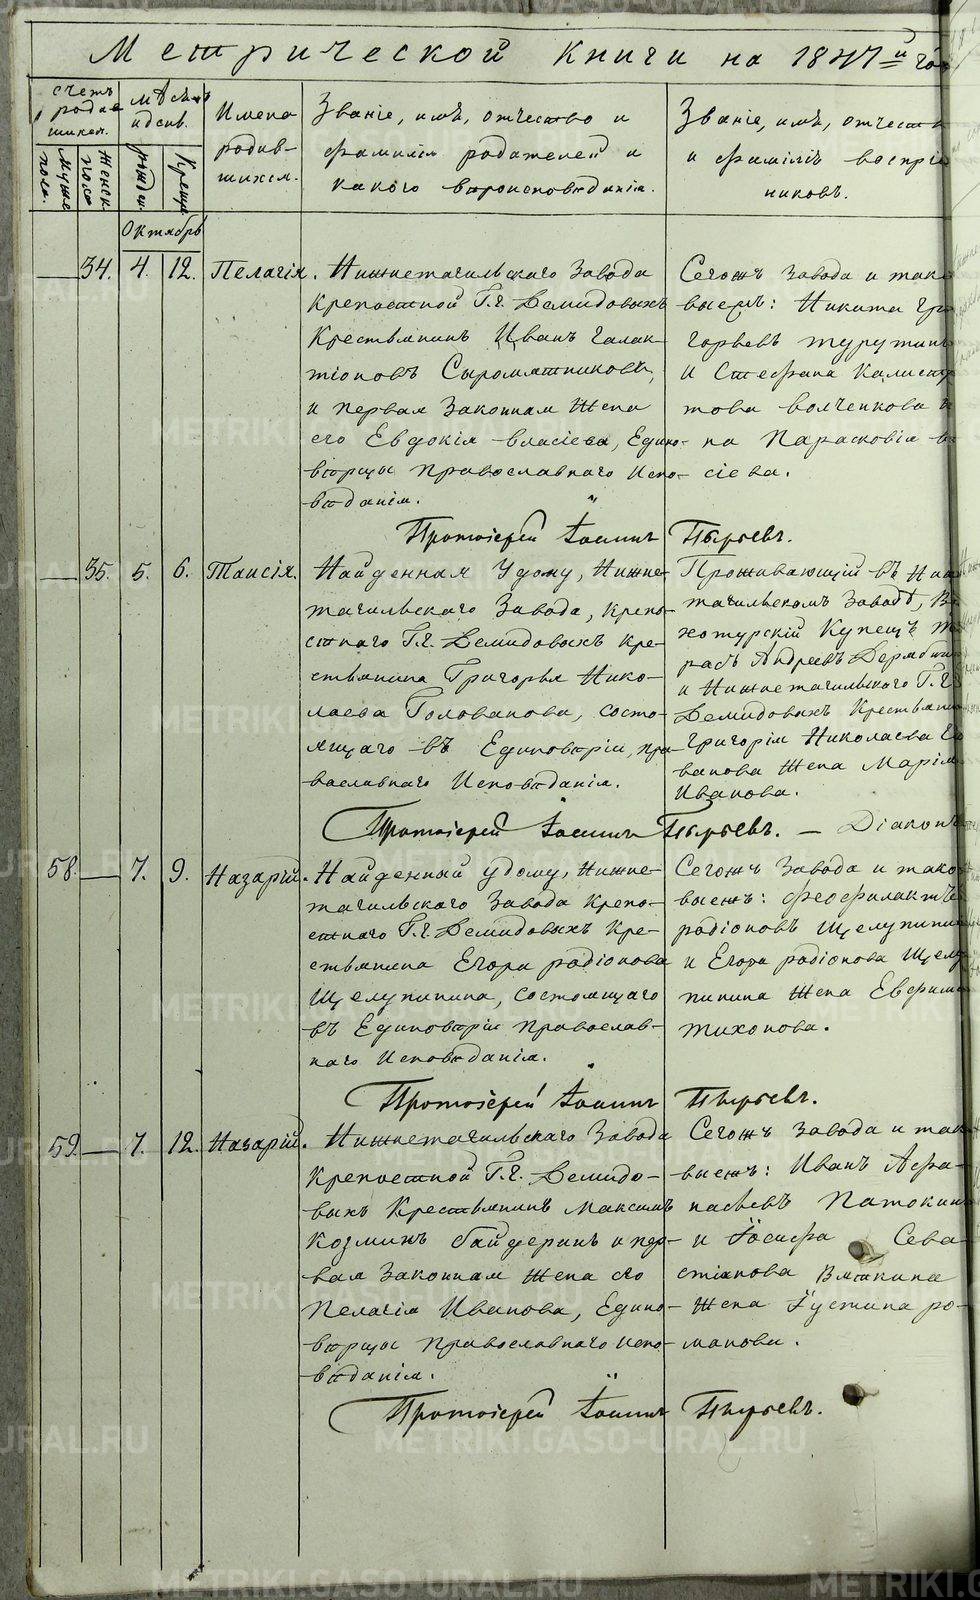 Метрической Книги на 1847й год
счетъ родившихся.
Мужеска пола.
Женск пола
мѣсяцъ и день.
рожден.
Крещен
Имена родив-
шихся.
Званіе, имя, отчество и
фамилія родителей и
какого вѣроисповѣданія.
Званіе, имя, отчество
и фамиліи воспріе
никовъ.
Октябрь
34. 4. 12. Пелагія.
Нижнетагильскаго Завода
крепостной Г.г. Демидовыхъ
Крестьянинъ Иванъ Галак-
тіоновъ Сыромятниковъ,
и первая Законная Жена
его Евдокія Власіева, Едино-
вѣрцы Православнаго Испо-
вѣданія.
Сегожъ Завода и тако
выежъ: Никита Гри
горьевъ турутинъ
и Стефана Калист
това волченкова
на Парасковія
сіева.
Протоіерей Іоаннъ Пырьевъ.
35. 5. 6. Таисія.
Найденная Удому, Нижне-
тагильскаго Завода, крепо-
стнаго Г.г. Демидовыхъ Кре-
стьянина Григорья Нико-
лаева Голованова, состо-
ящаго въ Единовѣріи, пра-
вославнаго Исповѣданія.
Проживающій въ Ниж
тагильскомъ Заводѣ, Ве
хотурскій Купецъ
расъ Андреевъ Дерябин
и Нижнетагильскаго Г.г
Демидовыхъ Крестьянина
Григорія Николаева Го
ванова Жена Марія
Иванова.
Протоіерей Іоаннъ Пырьевъ. — Діаконъ
58. 7. 9. Назарій.
Найденный удому, Нижне-
тагильскаго Завода крепо-
стнаго Г.г. Демидовыхъ Кре-
стьянина Егора родіонова
Щелупинина, состоящаго
въ Единовѣріи Православ-
наго Исповѣданія.
Сегожъ Завода и тако
выежъ: Феофилактъ
родіоновъ Щелупинин
и Егора родіонова Щелу
пинина Жена Евфимія
тихонова.
Протоіерей Іоаннъ Пырьевъ.
59. 7. 12. Назарій.
Нижнетагильскаго Завода
Крепостной Г.г. Демидо-
выхъ Крестьянинъ Максимъ
Козминъ байдеринъ и пер-
вая Законная Жена его
Пелагія Иванова, Едино-
вѣрцы Православнаго испо-
вѣданія.
Сегожъ Завода и так
выежъ: Иванъ Афа-
насьевъ Патокин
и Іосифа Сева-
стіянова Вяткина
Жена Іустина ро-
манова.
Протоіерей Іоаннъ Пырьевъ.
METRIKI.GASO-URAL.RU